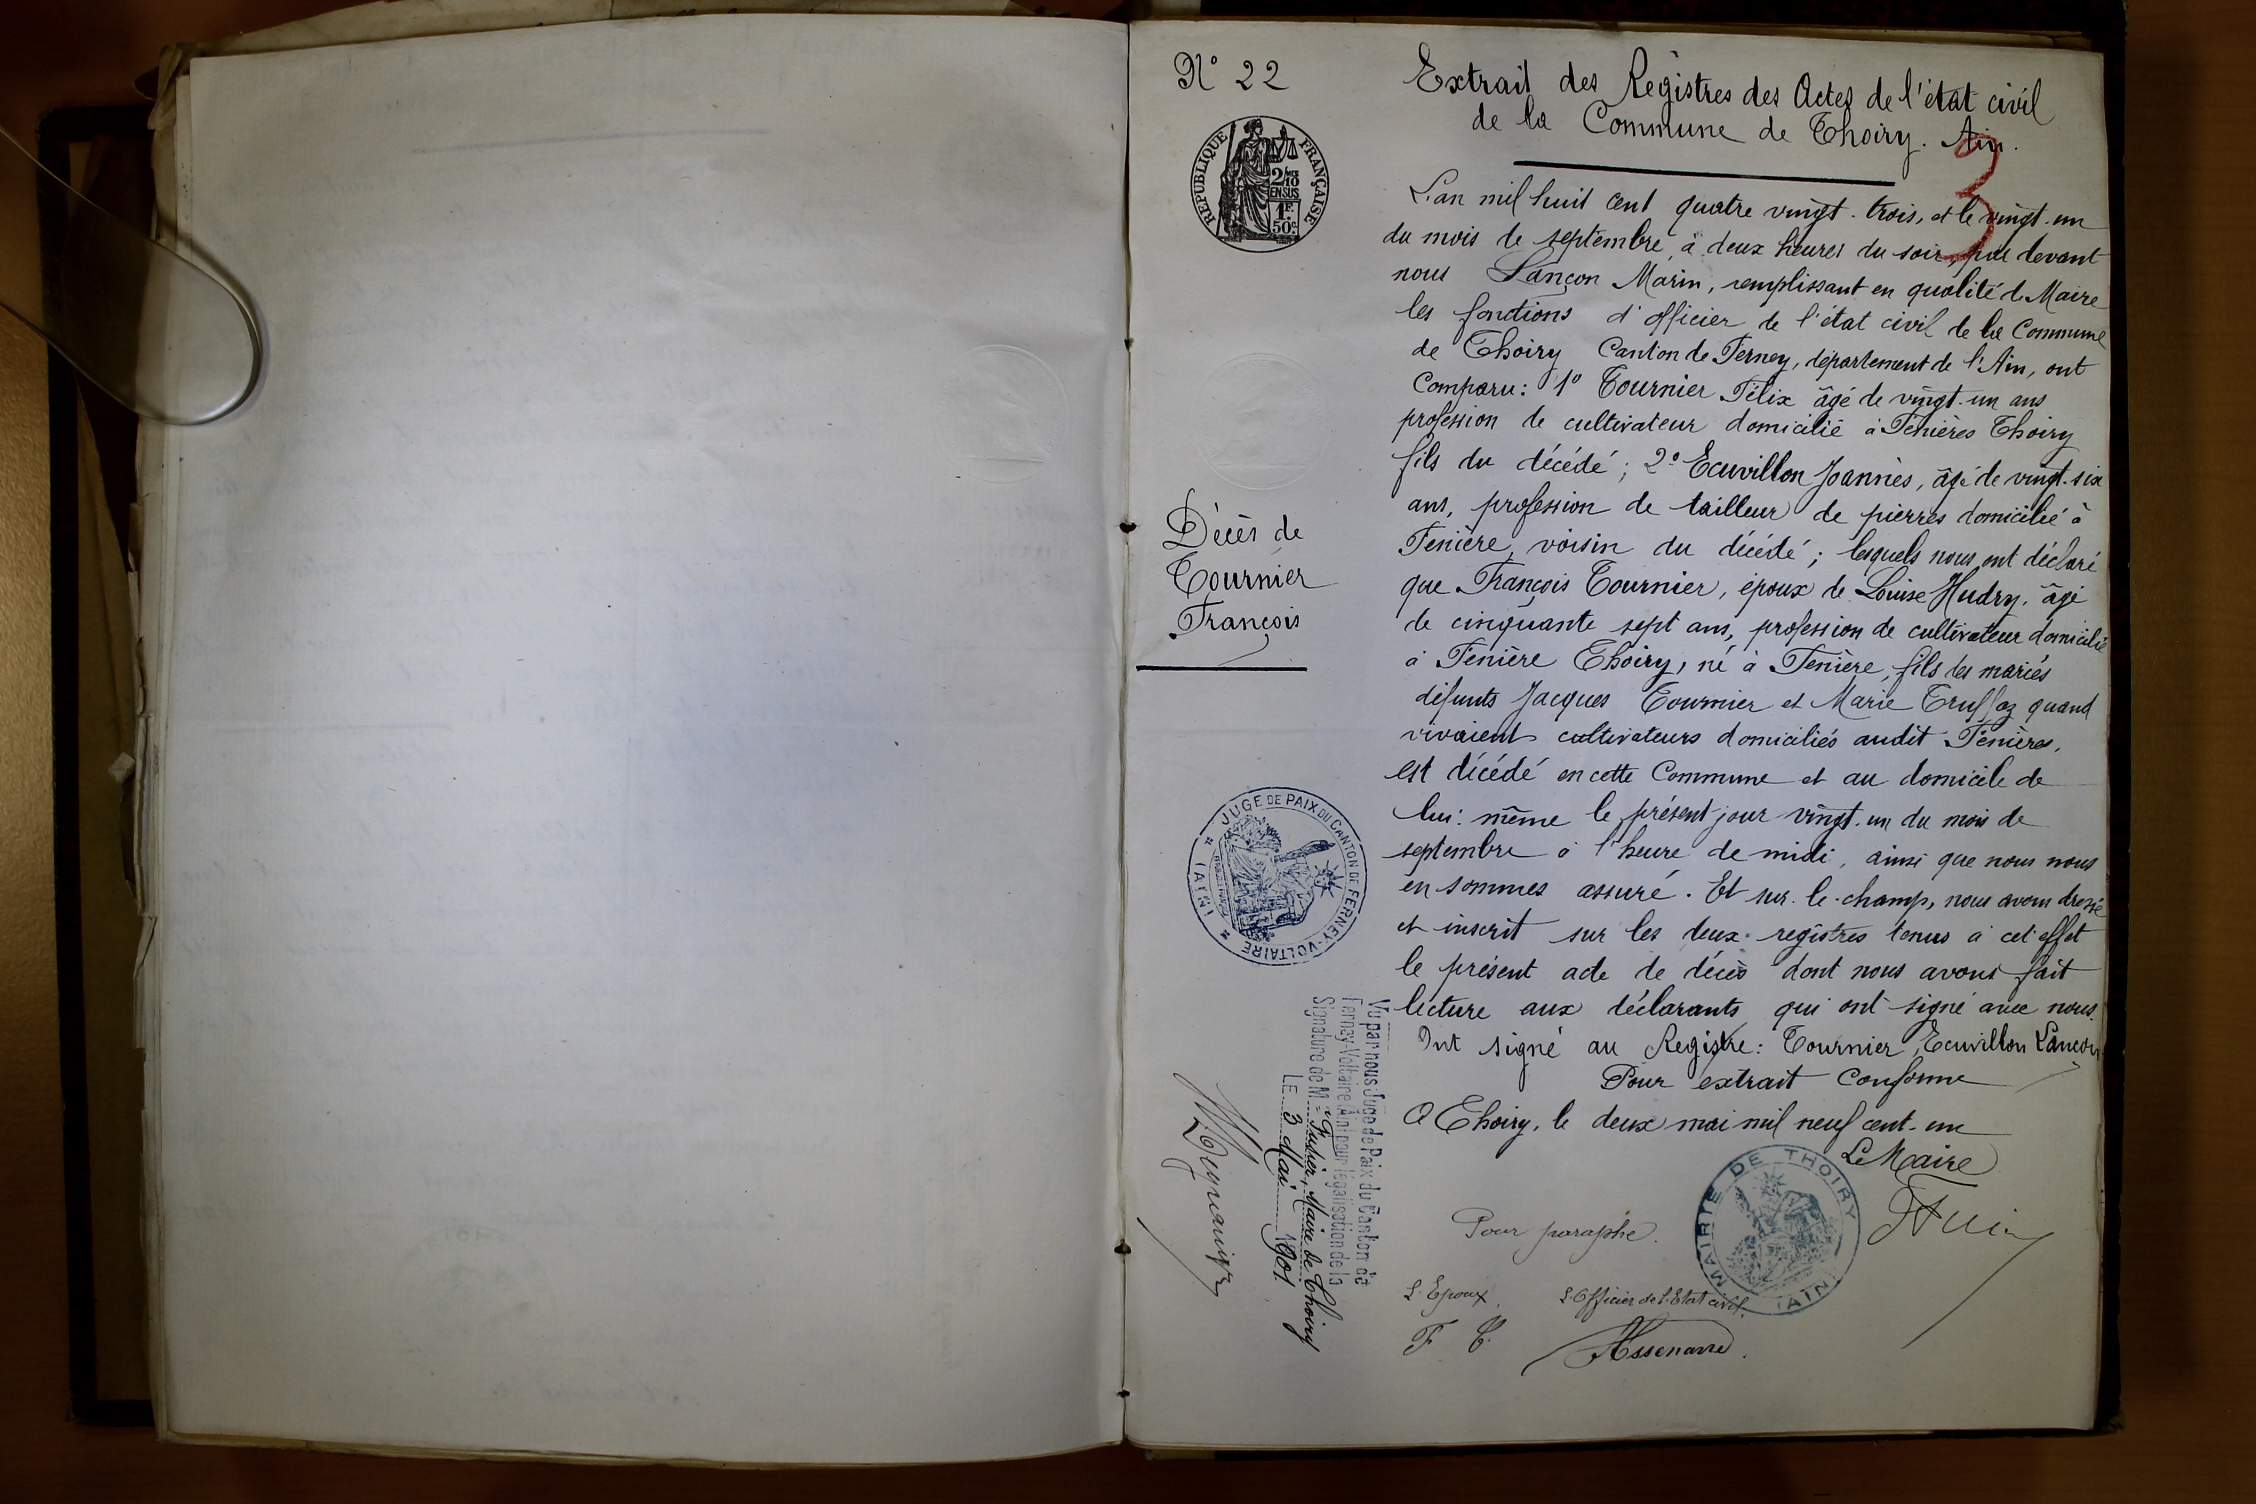 N° 22
Extrait des Registres des Actes de l'état civil
de la Commune de Thoiry. Ain.
3
RÉPUBLIQUE FRANÇAISE
2/10
EN SUS
1F.
50c
L'an mil huit cent quatre vingt-trois, et le vingt-un
du mois de septembre, à deux heures du soir, par devant
nous Lançon Marin, remplissant en qualité de Maire
les fonctions d'officier de l'état civil de la Commune
de Thoiry Canton de Ferney, département de l'Ain, ont
Comparu: 1° Tournier Félix âgé de vingt-un ans
profession de cultivateur domicilié à Fenières Thoiry
fils du décédé; 2° Ecuvillon Joannès, âgé de vingt-six
ans, profession de tailleur de pierres domicilié à
Fenière, voisin du décédé; lesquels nous ont déclaré
que François Tournier, époux de Louise Hudry, âgé
de cinquante sept ans, profession de cultivateur domicilié
à Fenière Thoiry, né à Fenière, fils des mariés
défunts Jacques Tournier et Marie Truffaz quand
vivaient cultivateurs domiciliés audit Fenières,
est décédé en cette Commune et au domicile de
lui-même le présent jour vingt-un du mois de
septembre à l'heure de midi, ainsi que nous nous
en sommes assuré. Et sur-le-champ, nous avons dressé
et inscrit sur les deux registres tenus à cet effet
le présent acte de décès dont nous avons fait
lecture aux déclarants qui ont signé avec nous.
Ont signé au Registre: Tournier, Ecuvillon Lançon
Pour extrait conforme
A Thoiry, le deux mai mil neuf cent-un
Le Maire
MAIRIE DE THOIRY
(AIN)
Pour paraphe.
L'Epoux.
L'Officier de l'Etat civil.
F T.
Décès de
Tournier
François
JUGE DE PAIX DU CANTON DE FERNEY-VOLTAIRE
(AIN)
Vu par nous Juge de Paix du Canton de
Ferney-Voltaire (Ain) pour légalisation de la
Signature de M. Maire de Thoiry
LE 3 Mai 1901